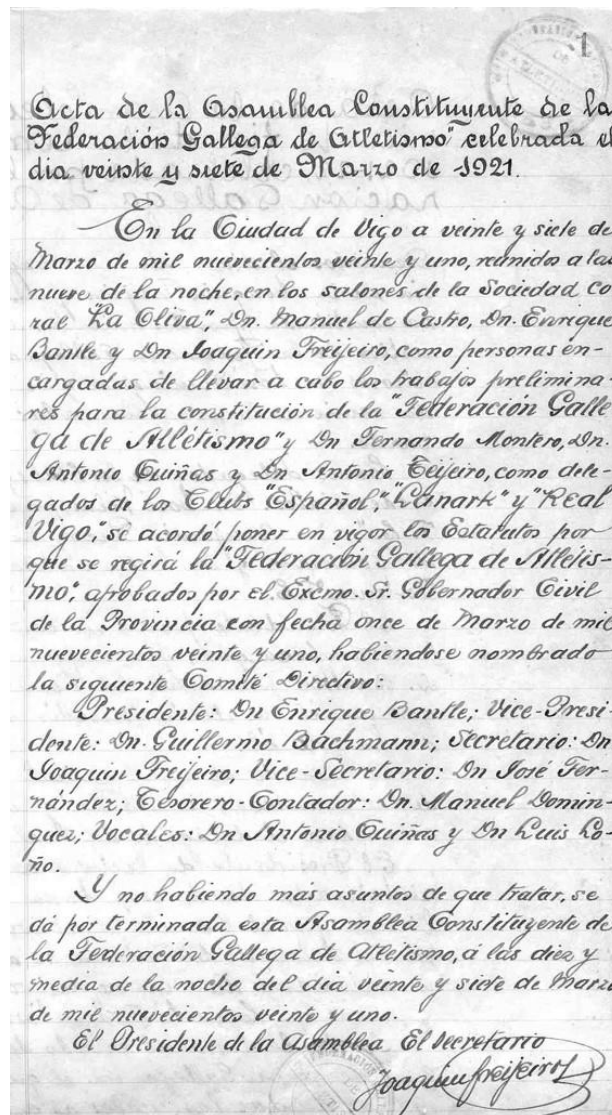 1
Acta de la Asamblea Constituyente de la
"Federación Gallega de Atletismo" celebrada el
dia veinte y siete de Marzo de 1921.
En la Ciudad de Vigo a veinte y siete de
Marzo de mil nuevecientos veinte y uno, reunidos a las
nueve de la noche, en los salones de la Sociedad co
ral "La Oliva", Dn. Manuel de Castro, Dn. Enrique
Bantle y Dn Joaquin Freijeiro, como personas en-
cargadas de llevar a cabo los trabajos prelimina-
res para la constitución de la "Federación Galle
ga de Atlétismo" y Dn Fernando Montero, Dn.
Antonio Guiñas y Dn Antonio Teijeiro, como dele-
gados de los Clubs "Español", "Lanark" y "Real
Vigo," se acordó poner en vigor los Estatutos por
que se regirá la "Federación Gallega de Atlétis-
mo", aprobados por el Excmo. Sr. Gobernador Civil
de la Provincia con fecha once de Marzo de mil
nuevecientos veinte y uno, habiendose nombrado
la siguiente Comité Directivo:
Presidente: Dn Enrique Bantle; Vice-Presi-
dente: Dn. Guillermo Bachmann; Secretario: Dn
Joaquin Freijeiro; Vice-Secretario: Dn José Fer-
nández; Tesorero-Contador: Dn. Manuel Domin-
guez; Vocales: Dn Antonio Guiñas y Dn Luis Lo-
ño.
Y no habiendo más asuntos de que tratar, se
dá por terminada esta Asamblea Constituyente de
la Federación Gallega de Atletismo, á las diez y
media de la noche del dia veinte y siete de Marzo
de mil nuevecientos veinte y uno.
El Presidente de la Asamblea El Secretario
Joaquin Freijeiro